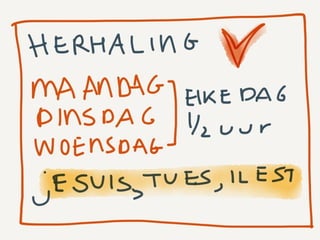 HERHALING
MAANDAG
DINSDAG
WOENSDAG
ELKE DAG
1/2 UUR
JE SUIS, TU ES, IL EST